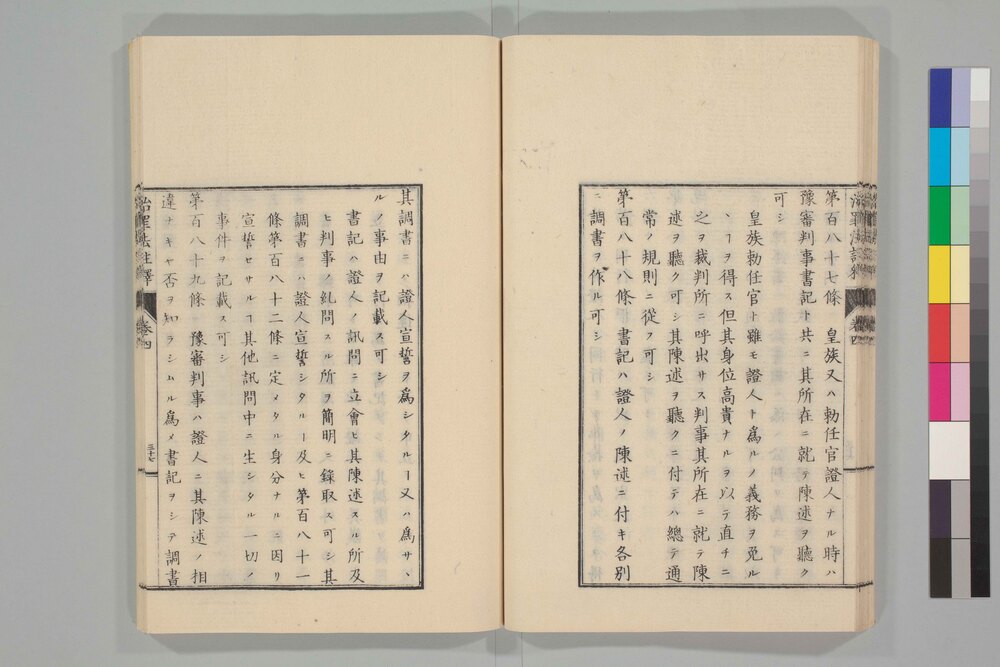 治罪法註釋 卷四
第百八十七條 皇族又ハ勅任官證人ナル時ハ
豫審判事書記ト共ニ其所在ニ就テ陳述ヲ聽ク
可シ
皇族勅任官ト雖モ證人ト爲ルノ義務ヲ免ル
ヽヿヲ得ス但其身位高貴ナルヲ以テ直チニ
之ヲ裁判所ニ呼出サス判事其所在ニ就テ陳
述ヲ聽ク可シ其陳述ヲ聽クニ付テハ總テ通
常ノ規則ニ從フ可シ
第百八十八條 書記ハ證人ノ陳述ニ付キ各別
ニ調書ヲ作ル可シ
其調書ニハ證人宣誓ヲ爲シタルヿ又ハ爲サヽ
ルノ事由ヲ記載ス可シ
書記ハ證人ノ訊問ニ立會ヒ其陳述スル所及
ヒ判事ノ糺問スル所ヲ簡明ニ錄取ス可シ其
調書ニハ證人宣誓シタルヿ及ヒ第百八十一
條第百八十二條ニ定メタル身分ナルニ因リ
宣誓セサルヿ其他訊問中ニ生シタル一切ノ
事件ヲ記載ス可シ
第百八十九條 豫審判事ハ證人ニ其陳述ノ相
違ナキヤ否ヲ知ラシムル爲メ書記ヲシテ調書
治罪法註釋 卷四